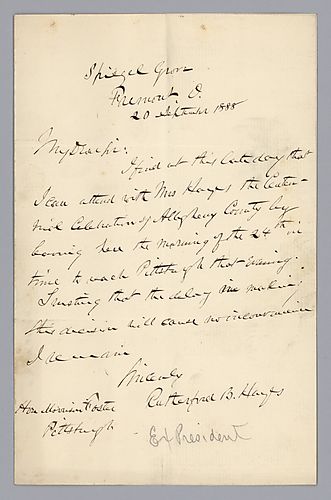 Spiegel Grove
Fremont O.
20 September 1888
My Dear Sir:
I find at this late day that
I can attend with Mrs Hayes the Centen-
nial Celebration of Allegheny County by
leaving here the morning of the 24th in
time to reach Pittsburgh that evening.
Trusting that the delay in making
this decision will cause no inconvenience
I remain
Sincerely
Rutherford B. Hayes
Hon Morrison Foster
Pittsburgh
Ex President